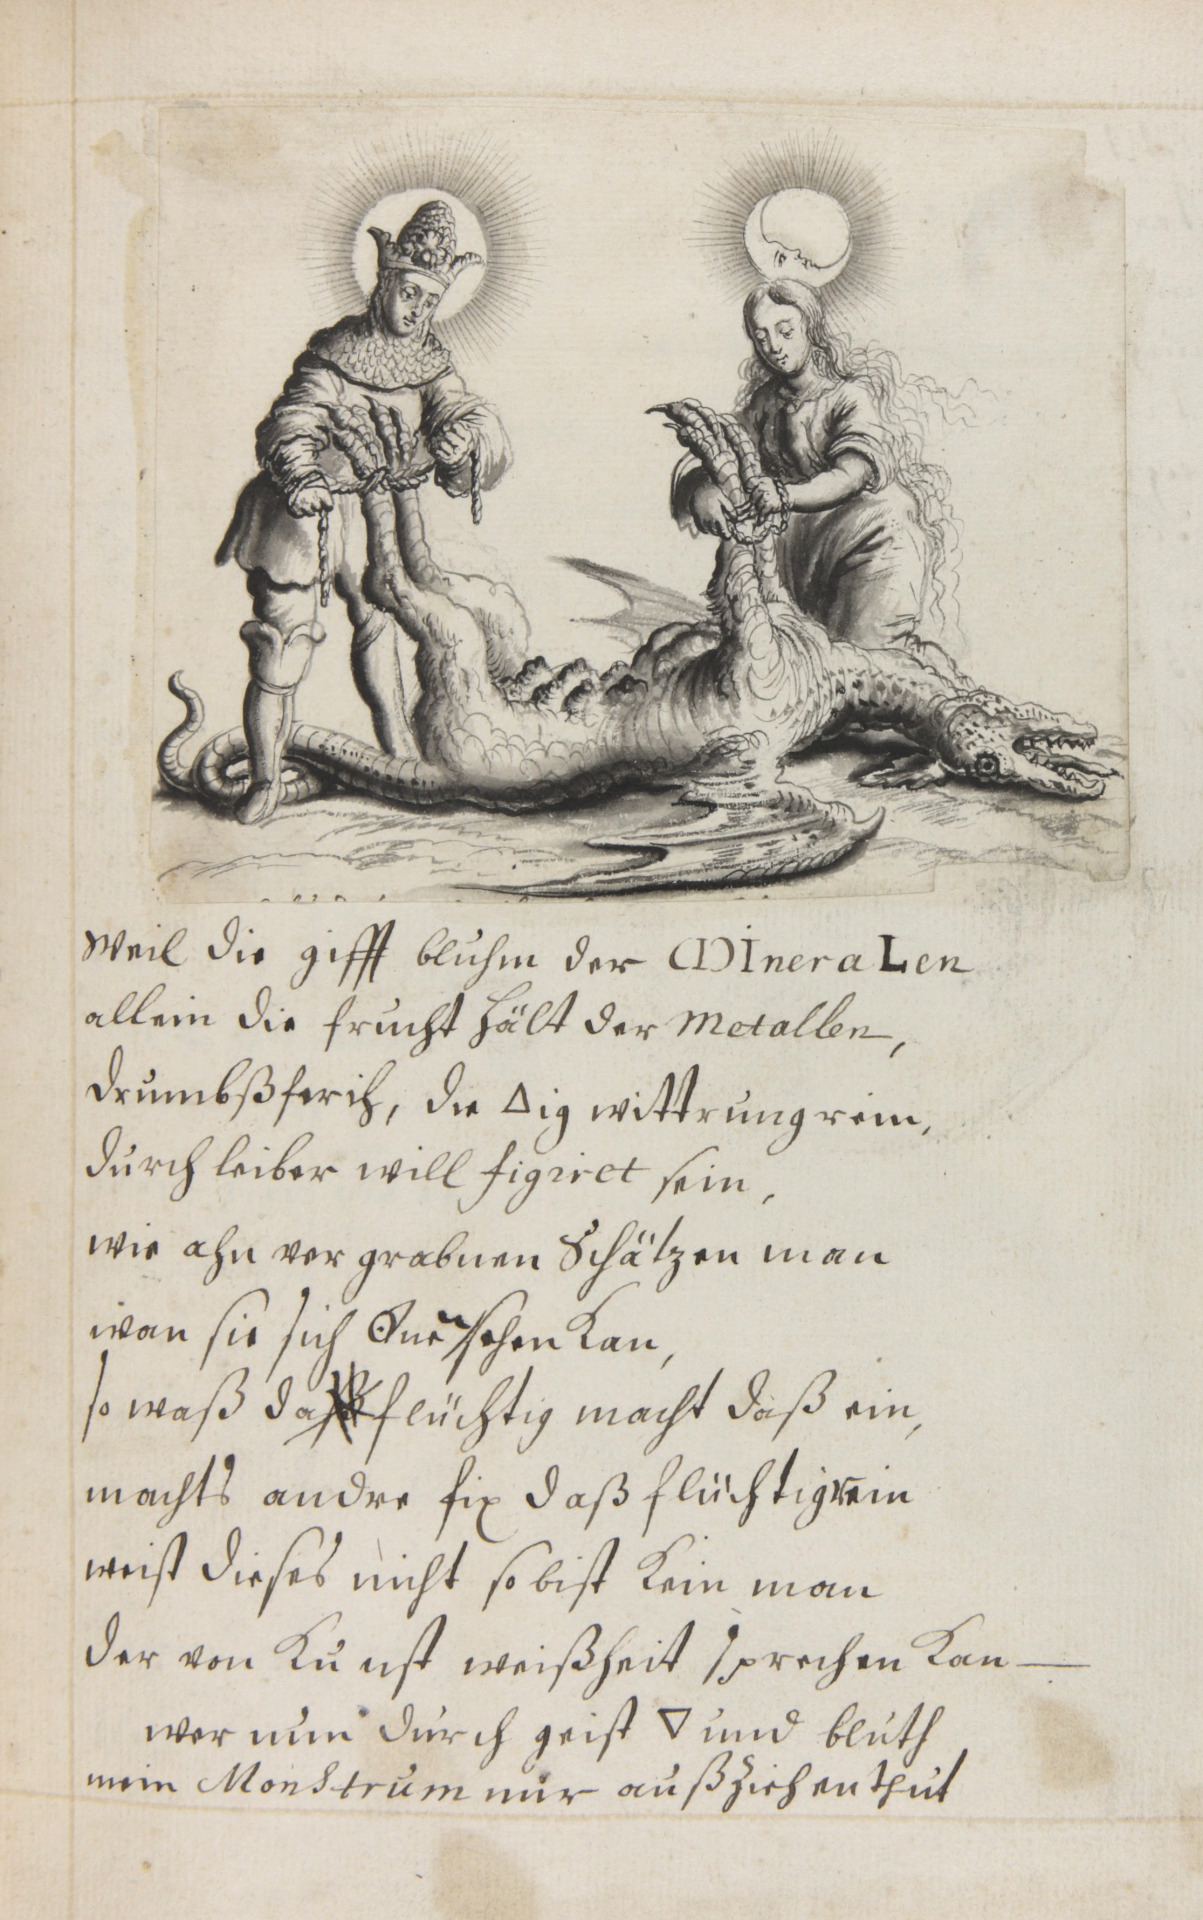 Weil die gifft bluhm der MineraLen
allein die frucht hält der Metallen,
drumbß ferih, die △ig wittrung rein,
durch leiber will figiret sein,
wie ahn vergrabnen Schätzen man
wan sie sich sehen kan,
so waß da flüchtig macht daß ein,
machts andre fix daß flüchtig rein
weist dieses nicht so bist kein man
der von Kunst weißheit sprechen kan —
wer nun durch geist ▽ und bluth
mein Monstrum nur außziehen thut